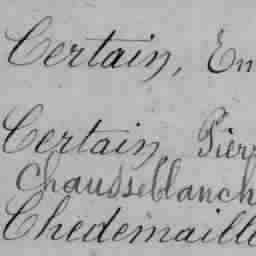 Certain, En
Certain, Pierr
Chausseblanch
Chedemaille